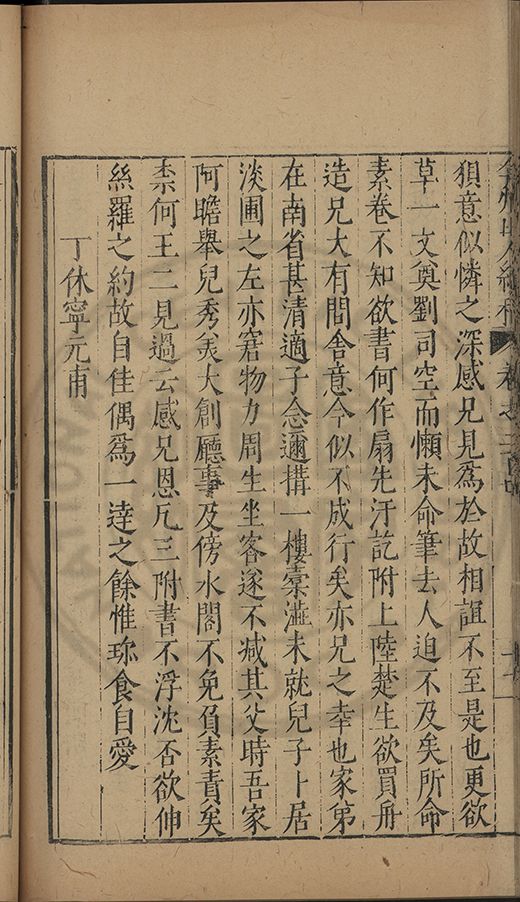 弇州山人續稿 卷之二百 十
狽意似憐之深感兄見爲於故相誼不至是也更欲
草一文奠劉司空而懶未命筆去人迫不及矣所命
素卷不知欲書何作扇先汙訖附上陸楚生欲買舟
造兄大有問舍意今似不成行矣亦兄之幸也家弟
在南省甚清適子念邇搆一樓橐澁未就兒子卜居
淡圃之左亦窘物力周生坐客遂不减其父時吾家
阿瞻舉兒秀美大創廳事及傍水閣不免負素責矣
柰何王二見過云感兄恩凡三附書不浮沈否欲伸
絲羅之約故自佳偶爲一逹之餘惟珎食自愛
丁休寧元甫